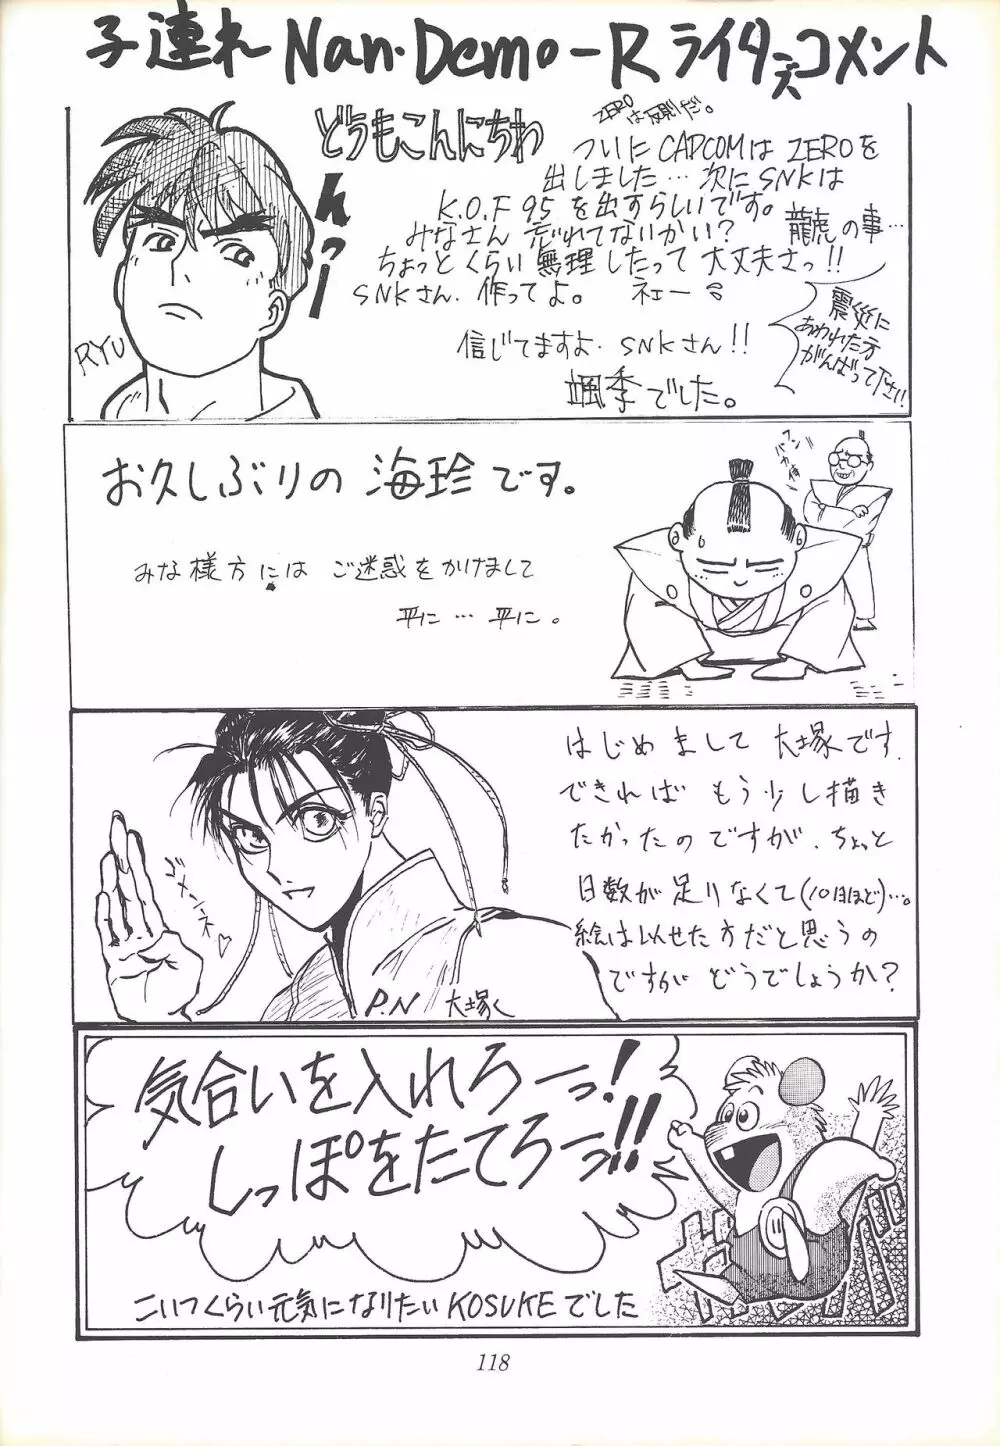 子連れ Nan・Demo-R ライターズコメント
どうもこんにちわ
んっー
RYU
ZEROは反則だ。
ついに CAPCOMは ZEROを
出しました… 次に SNKは
K.O.F 95 を出すらしいです。
みなさん 忘れてないかい? 龍虎の事…
ちょっとくらい無理したって大丈夫さっ!!
SNKさん. 作ってよ。 ネェー
信じてますよ. SNKさん!!
颯季でした。
震災に
あわれた方
がんばって下さい!!
お久しぶりの 海珍です。
みな様方には ご迷惑をかけまして
平に … 平に。
はじめまして 大塚です.
できれば もう少し描き
たかったのですが、ちょっと
日数が足りなくて(10日ほど)…。
絵は似せた方だと思うの
ですが どうでしょうか?
ゴメーネ♡
P.N 大塚く
気合いを入れろーっ!
しっぽをたてろーっ!!
こいつくらい元気になりたい KOSUKEでした
118